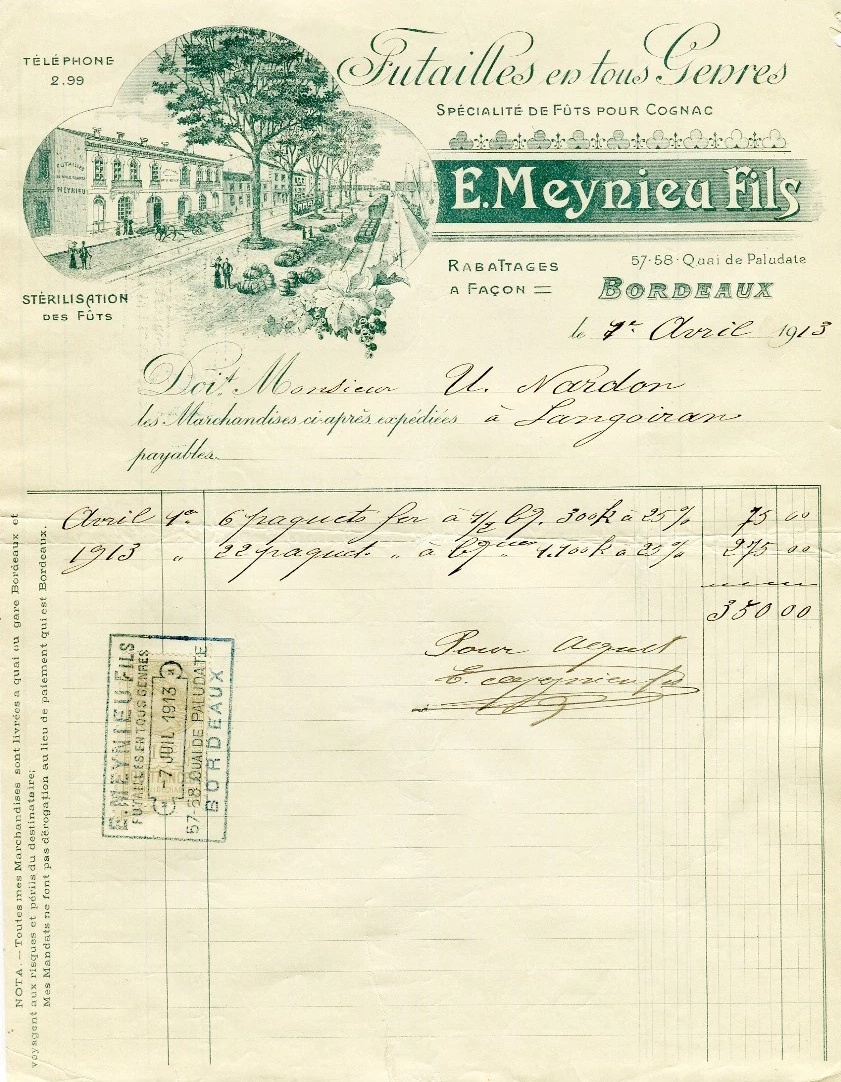 TÉLÉPHONE
2.99
Futailles en tous Genres
SPÉCIALITÉ DE FÛTS POUR COGNAC
FUTAILLES
MEYNIEU
E. Meynieu Fils
RABATTAGES
A FAÇON =
57-58 · Quai de Paludate
BORDEAUX
STÉRILISATION
DES FÛTS
le 1er Avril 1913
Doit Monsieur U. Nardon
les Marchandises ci-après expédiées à Langoiran
payables
Avril 1er 6 paquets fer à 1/2 bq. 300k à 25% 75 00
1913 " 22 paquets " à bques 1.100k à 25% 275 00
350 00
Pour Acquit
E. Meynieu fils
E. MEYNIEU FILS
FUTAILLES EN TOUS GENRES
-7 JUIL 1913
57-58 QUAI DE PALUDATE
BORDEAUX
NOTA. — Toutes mes Marchandises sont livrées a quai ou gare Bordeaux et
voyagent aux risques et périls du destinataire;
Mes Mandats ne font pas dérogation au lieu de paiement qui est Bordeaux.